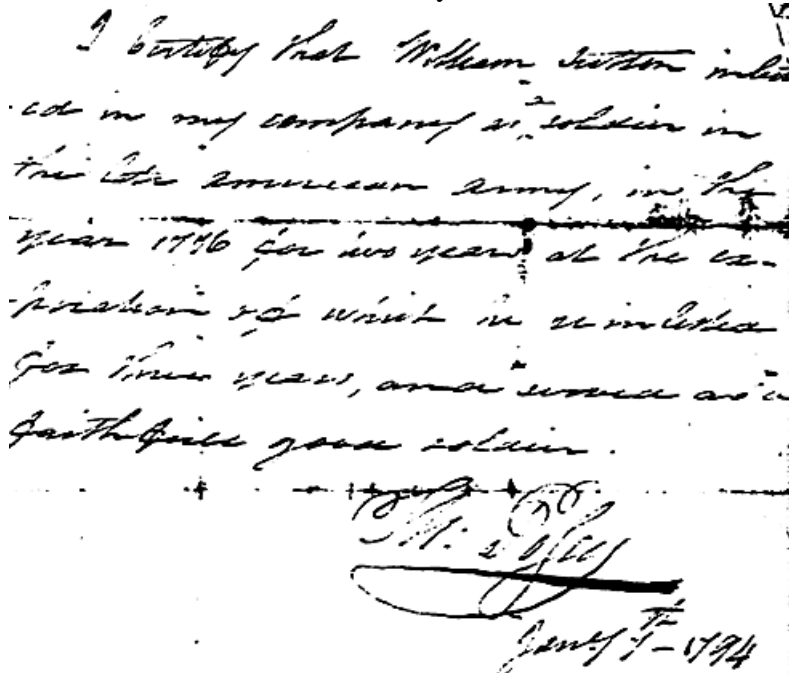 I Certify that William Sutton inlist
ed in my company as a soldier in
the late american army, in the
year 1776 for two years at the ex-
piration of which he reinlisted
for three years, and served as a
faithfull good soldier.
Th:
Jany 7th - 1794